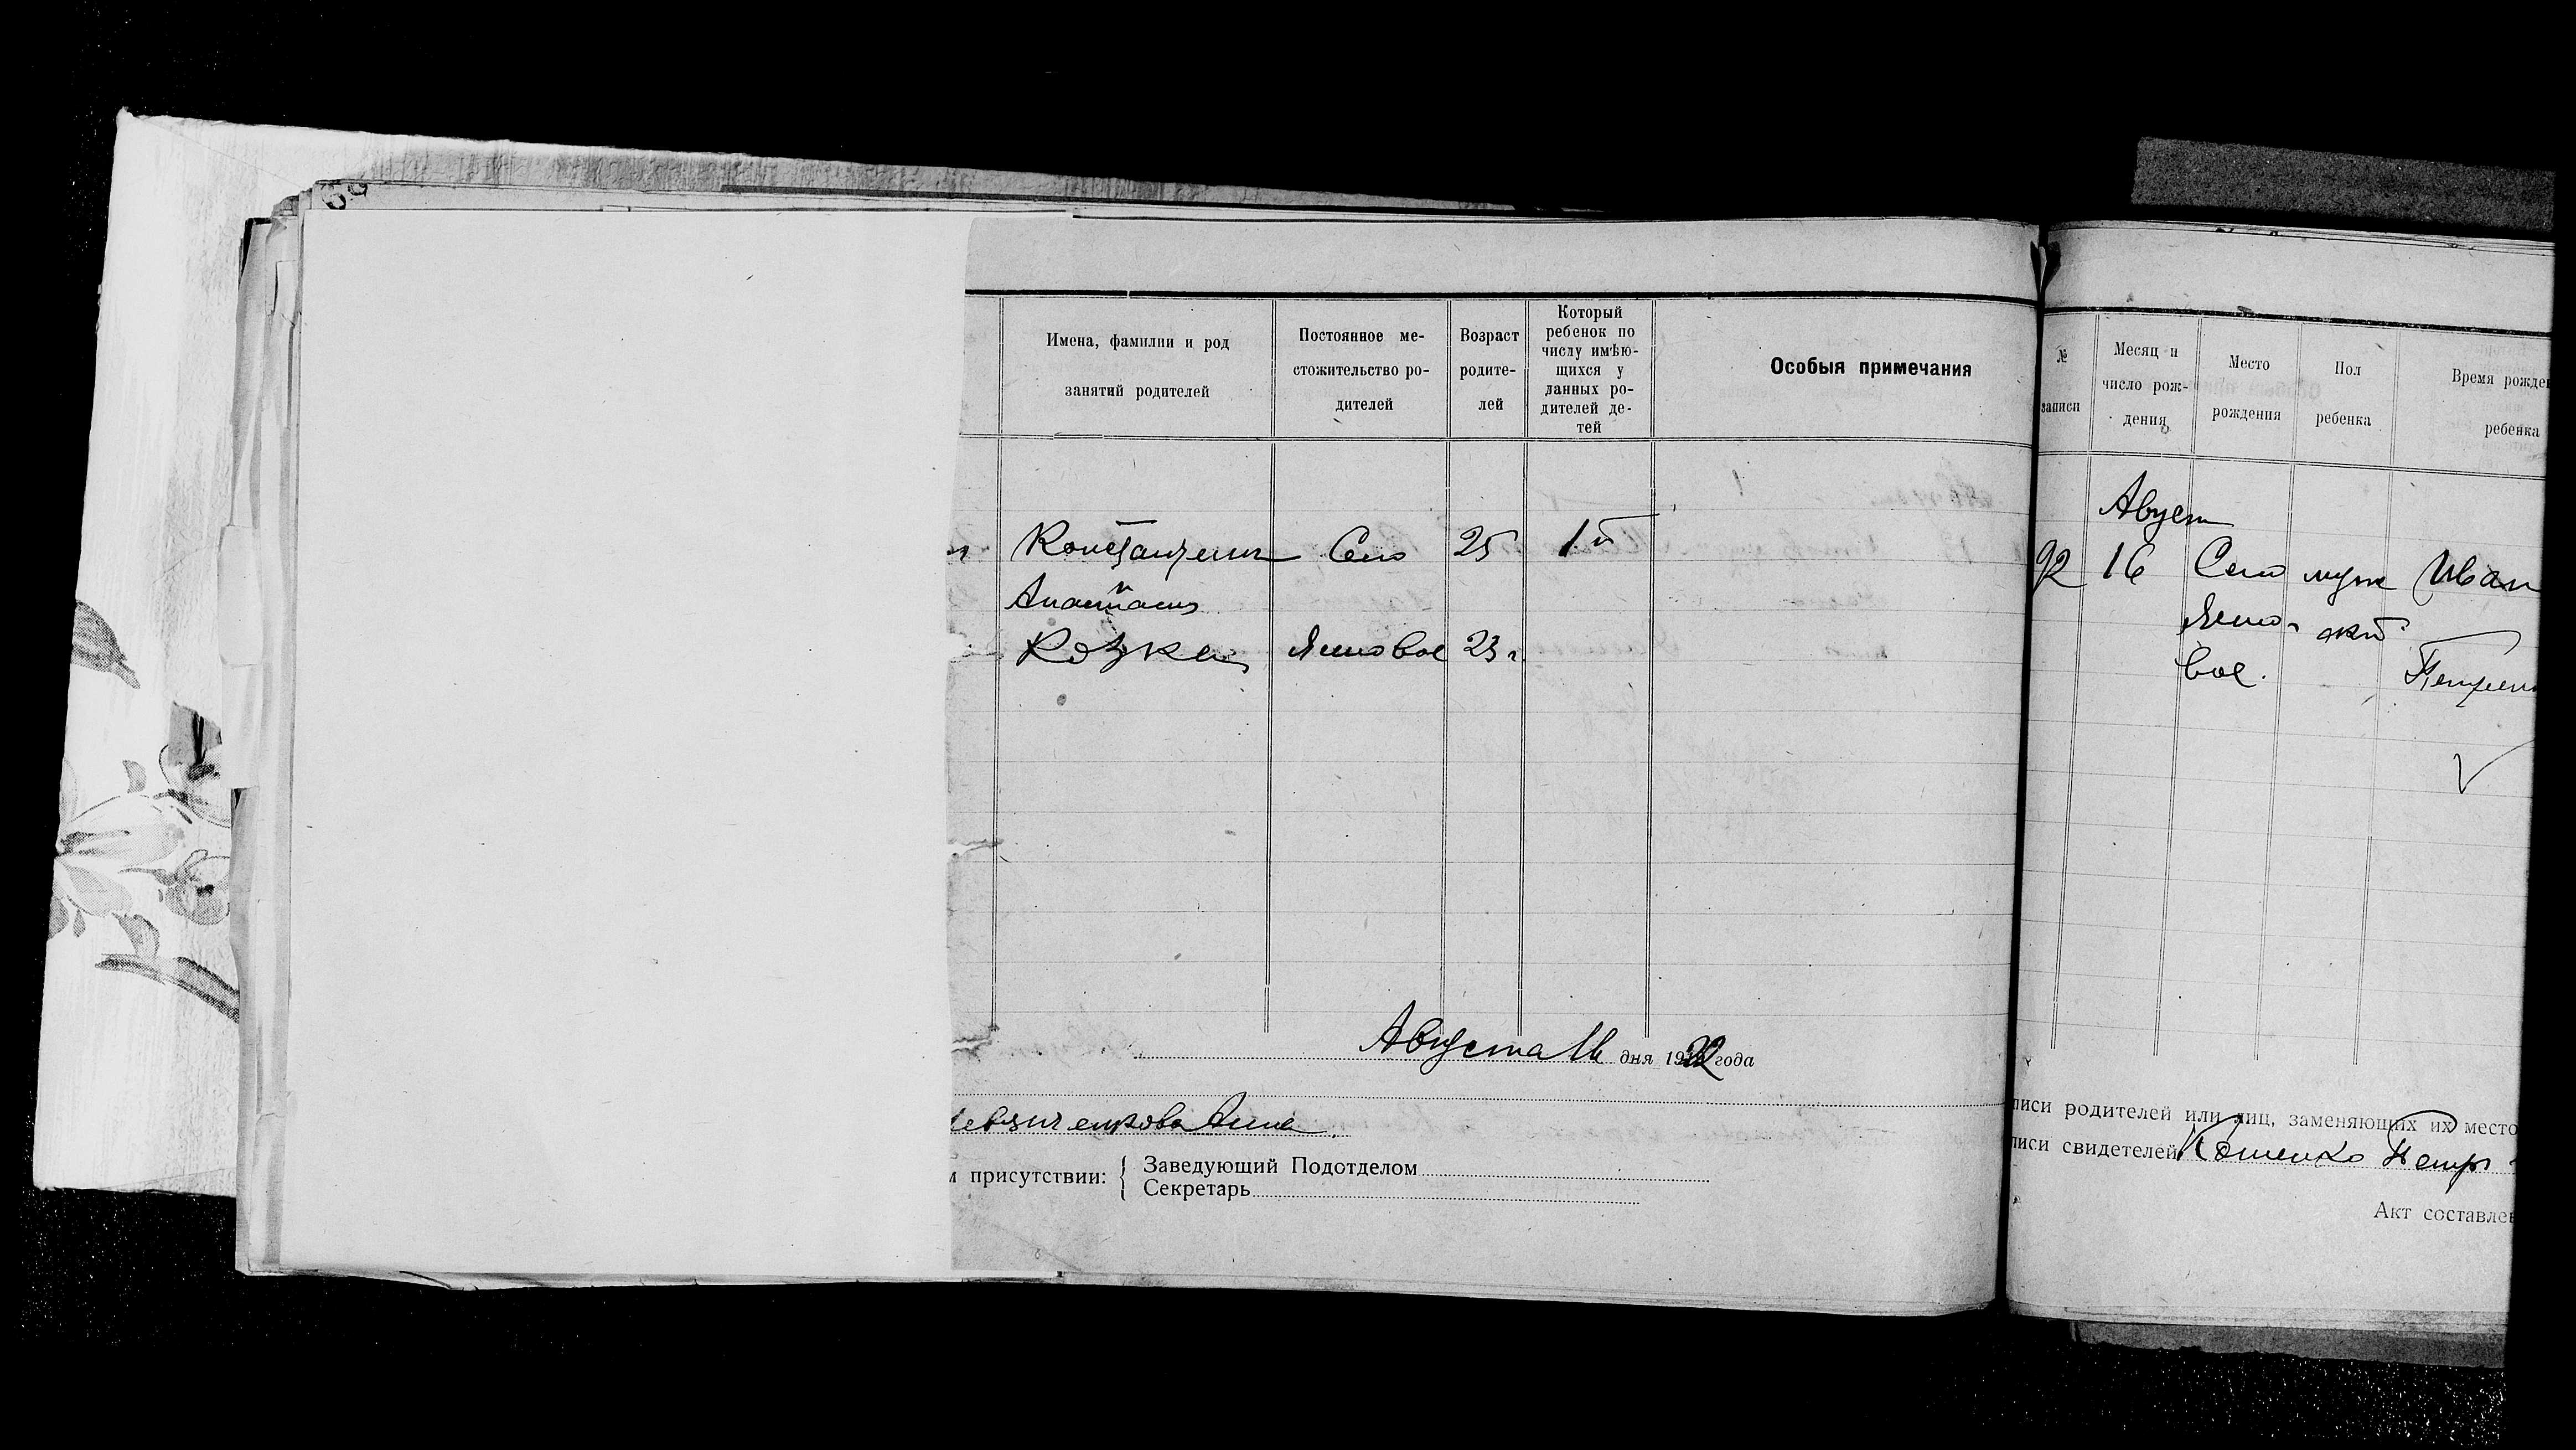 Имена, фамилии и род
занятий родителей
Постоянное ме-
стожительство ро-
дителей
Возраст
родите-
лей
Который
ребенок по
числу имѣю-
щихся у
данных ро-
дителей де-
тей
Особыя примечания
Константин Село 25 1й
Анастасия
Козка Яшновое 23 г.
Августа 16 дня 1922 года
Анна
присутствии: { Заведующий Подотделом
Секретарь
№
записи
Месяц и
число рож-
дения
Место
рождения
Пол
ребенка
Время рожде
ребенка
Август
92 16 Село муж Иван
ской
вое.
писи родителей или лиц, заменяющих их место
писи свидетелей Петр
Акт составлен